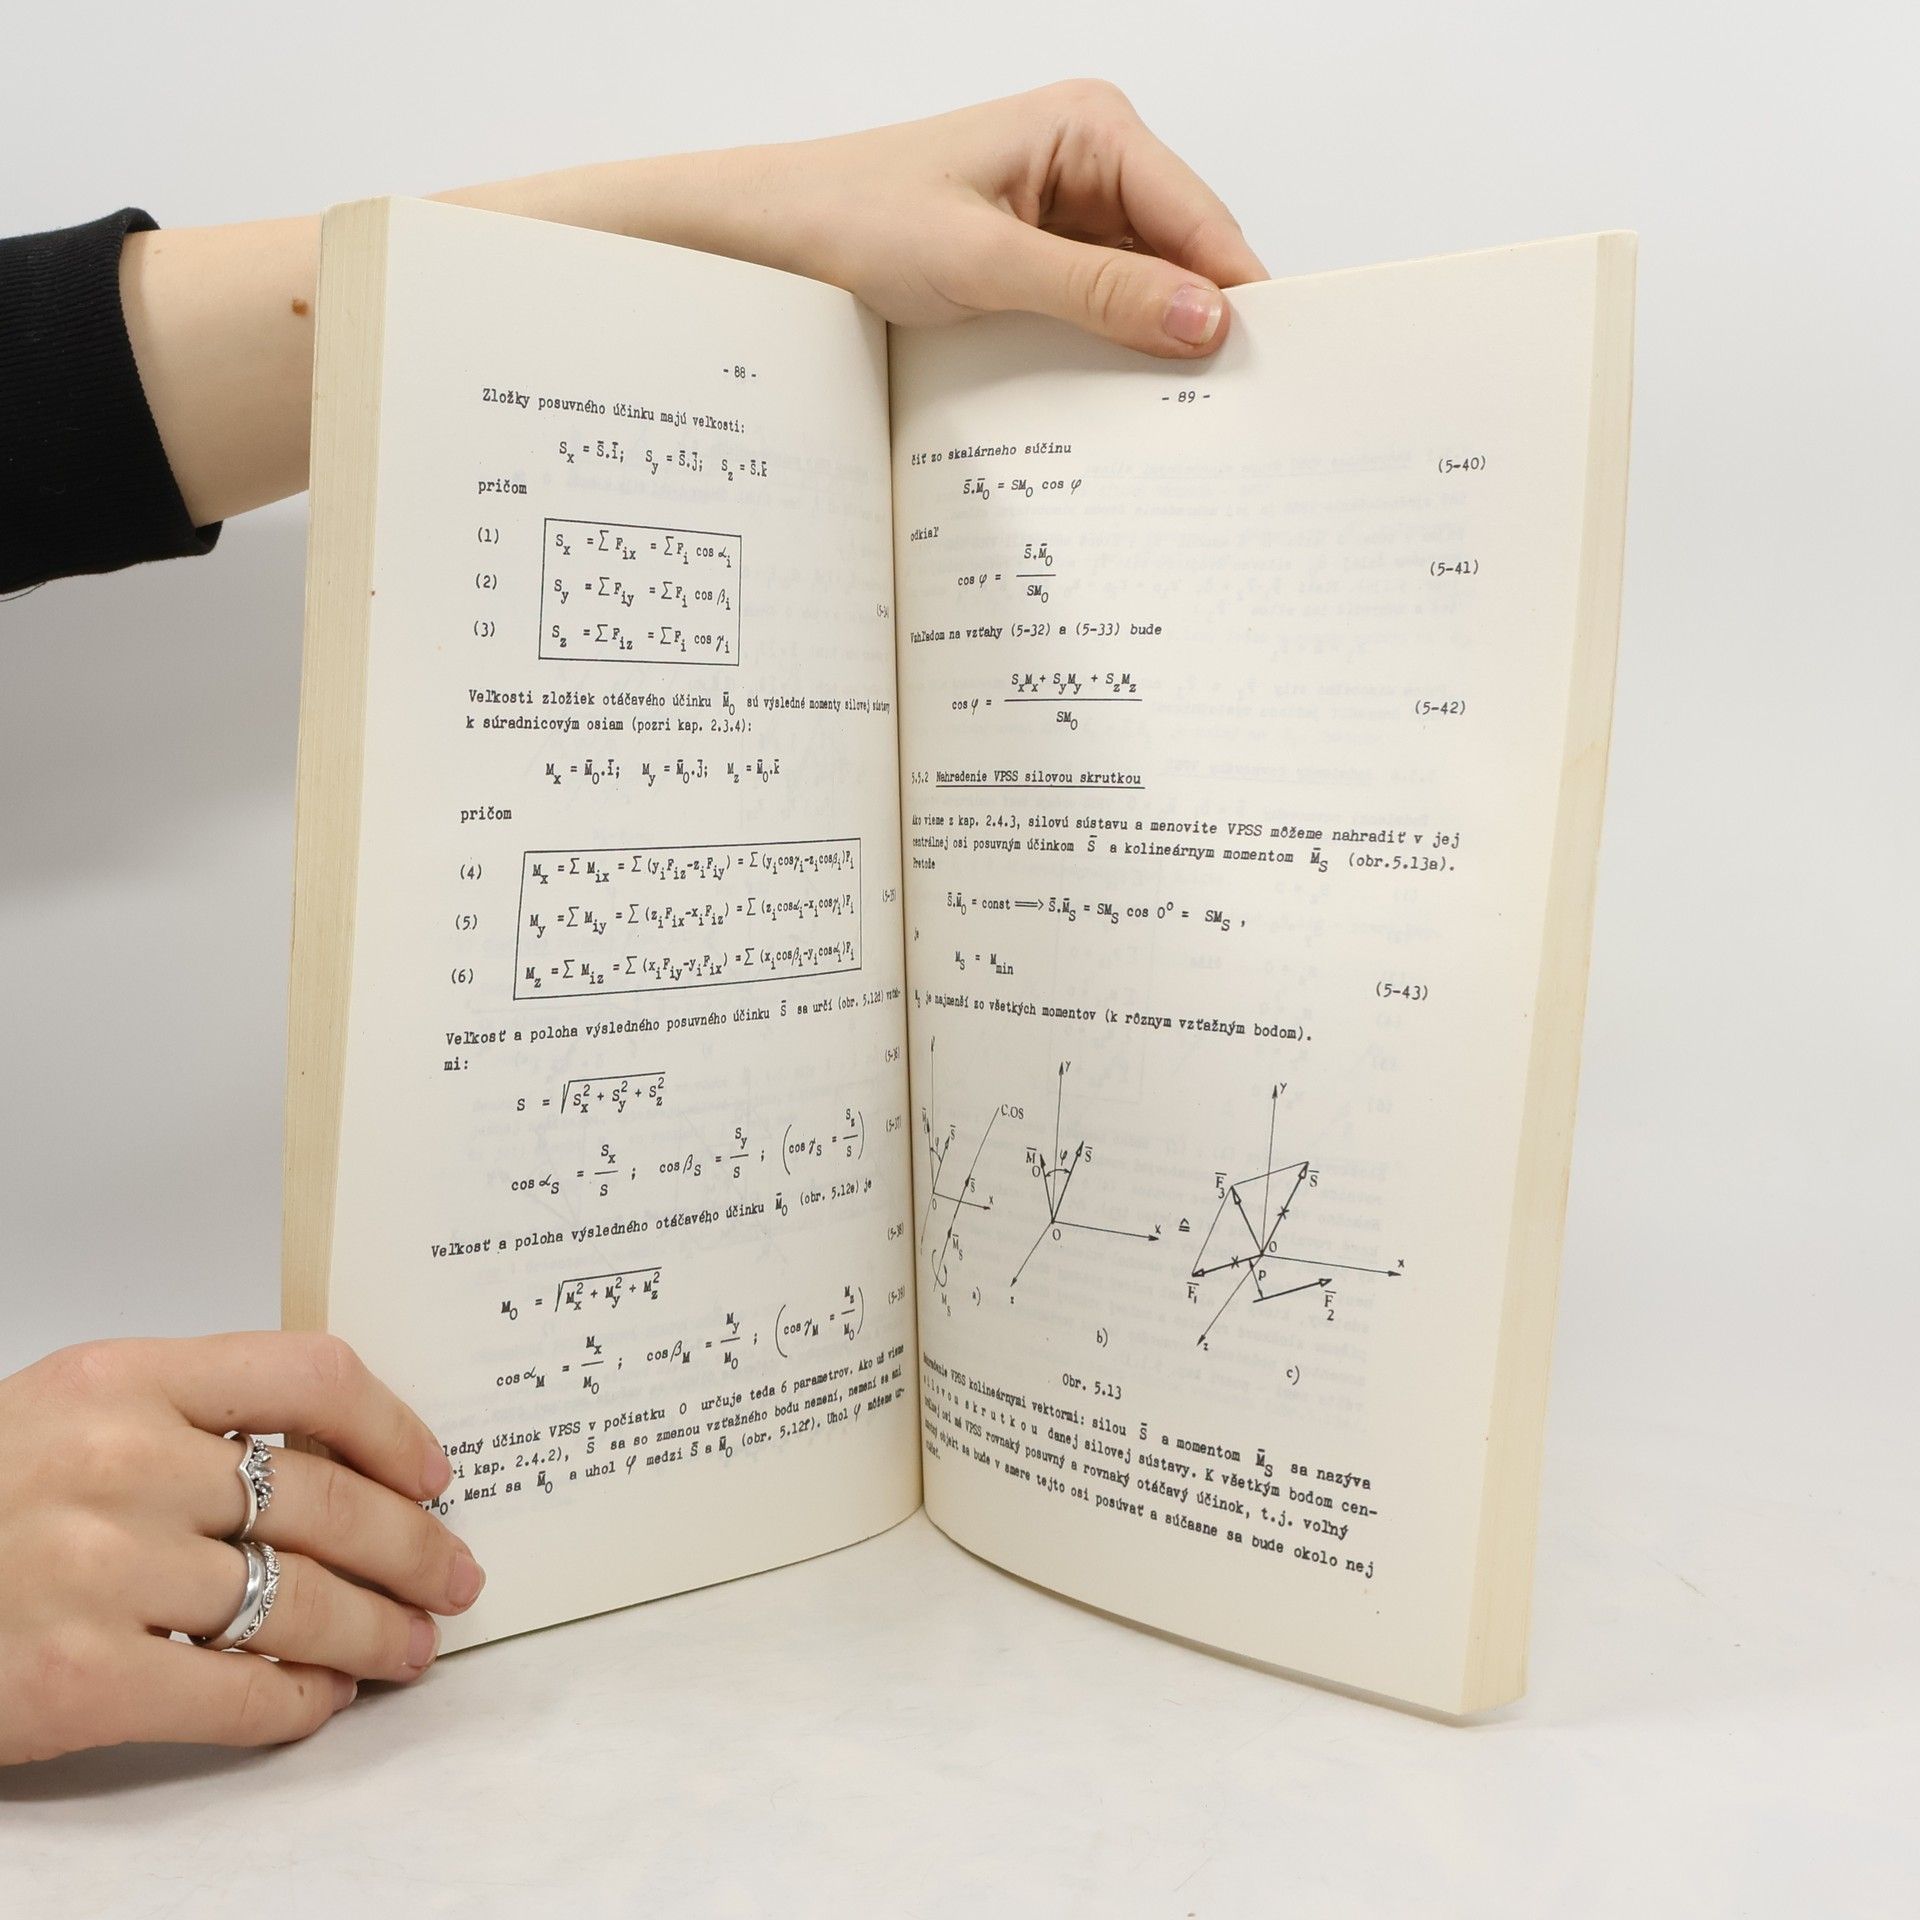 - 88 -
Zložky posuvného účinku majú veľkosti:
S_x = S̄.ī; S_y = S̄.j̄; S_z = S̄.k̄
pričom
(1) S_x = ∑ F_ix = ∑F_i cos α_i
(2) S_y = ∑ F_iy = ∑F_i cos β_i
(3) S_z = ∑ F_iz = ∑F_i cos γ_i
(5-34)
Veľkosti zložiek otáčavého účinku M̄_O sú výsledné momenty silovej sústavy
k súradnicovým osiam (pozri kap. 2.3.4):
M_x = M̄_O.ī; M_y = M̄_O.j̄; M_z = M̄_O.k̄
pričom
(4) M_x = ∑ M_ix = ∑ (y_iF_iz-z_iF_iy) = ∑ (y_icosγ_i-z_icosβ_i)F_i
(5) M_y = ∑ M_iy = ∑ (z_iF_ix-x_iF_iz) = ∑ (z_icosα_i-x_icosγ_i)F_i
(5-35)
(6) M_z = ∑ M_iz = ∑ (x_iF_iy-y_iF_ix) = ∑ (x_icosβ_i-y_icosα_i)F_i
Veľkosť a poloha výsledného posuvného účinku S̄ sa určí (obr. 5.12d) vzťah-
mi:
S = √(S_x² + S_y² + S_z²) (5-36)
cos α_S = S_x/S ; cos β_S = S_y/S ; (cos γ_S = S_z/S) (5-37)
Veľkosť a poloha výsledného otáčavého účinku M̄_O (obr. 5.12e) je
M_O = √(M_x² + M_y² + M_z²) (5-38)
cos α_M = M_x/M_O ; cos β_M = M_y/M_O ; (cos γ_M = M_z/M_O) (5-39)
ledný účinok VPSS v počiatku O určuje teda 6 parametrov. Ako už vieme
ri kap. 2.4.2), S̄ sa so zmenou vzťažného bodu nemení, nemení sa ani
.M̄_O. Mení sa M̄_O a uhol φ medzi S̄ a M̄_O (obr. 5.12f). Uhol φ môžeme ur-
- 89 -
čiť zo skalárneho súčinu
S̄.M̄_O = SM_O cos φ (5-40)
odkiaľ
cos φ = S̄.M̄_O / SM_O (5-41)
Vzhľadom na vzťahy (5-32) a (5-33) bude
cos φ = (S_xM_x + S_yM_y + S_zM_z) / SM_O (5-42)
5.5.2 Nahradenie VPSS silovou skrutkou
Ako vieme z kap. 2.4.3, silovú sústavu a menovite VPSS môžeme nahradiť v jej
centrálnej osi posuvným účinkom S̄ a kolineárnym momentom M̄_S (obr.5.13a).
Pretože
S̄.M̄_O = const ⟹ S̄.M̄_S = SM_S cos 0° = SM_S ,
je
M_S = M_min
(5-43)
M_S je najmenší zo všetkých momentov (k rôznym vzťažným bodom).
φ S̄ C.OS O x S̄ M̄_S M_S a)
y M̄_O φ S̄ O x z b)
≙
y F̄_3 S̄ O x F̄_1 p F̄_2 z c)
Obr. 5.13
Nahradenie VPSS kolineárnymi vektormi: silou S̄ a momentom M̄_S sa nazýva
silovou skrutkou danej silovej sústavy. K všetkým bodom cen-
trálnej osi má VPSS rovnaký posuvný a rovnaký otáčavý účinok, t.j. voľný
objekt sa bude v smere tejto osi posúvať a súčasne sa bude okolo nej